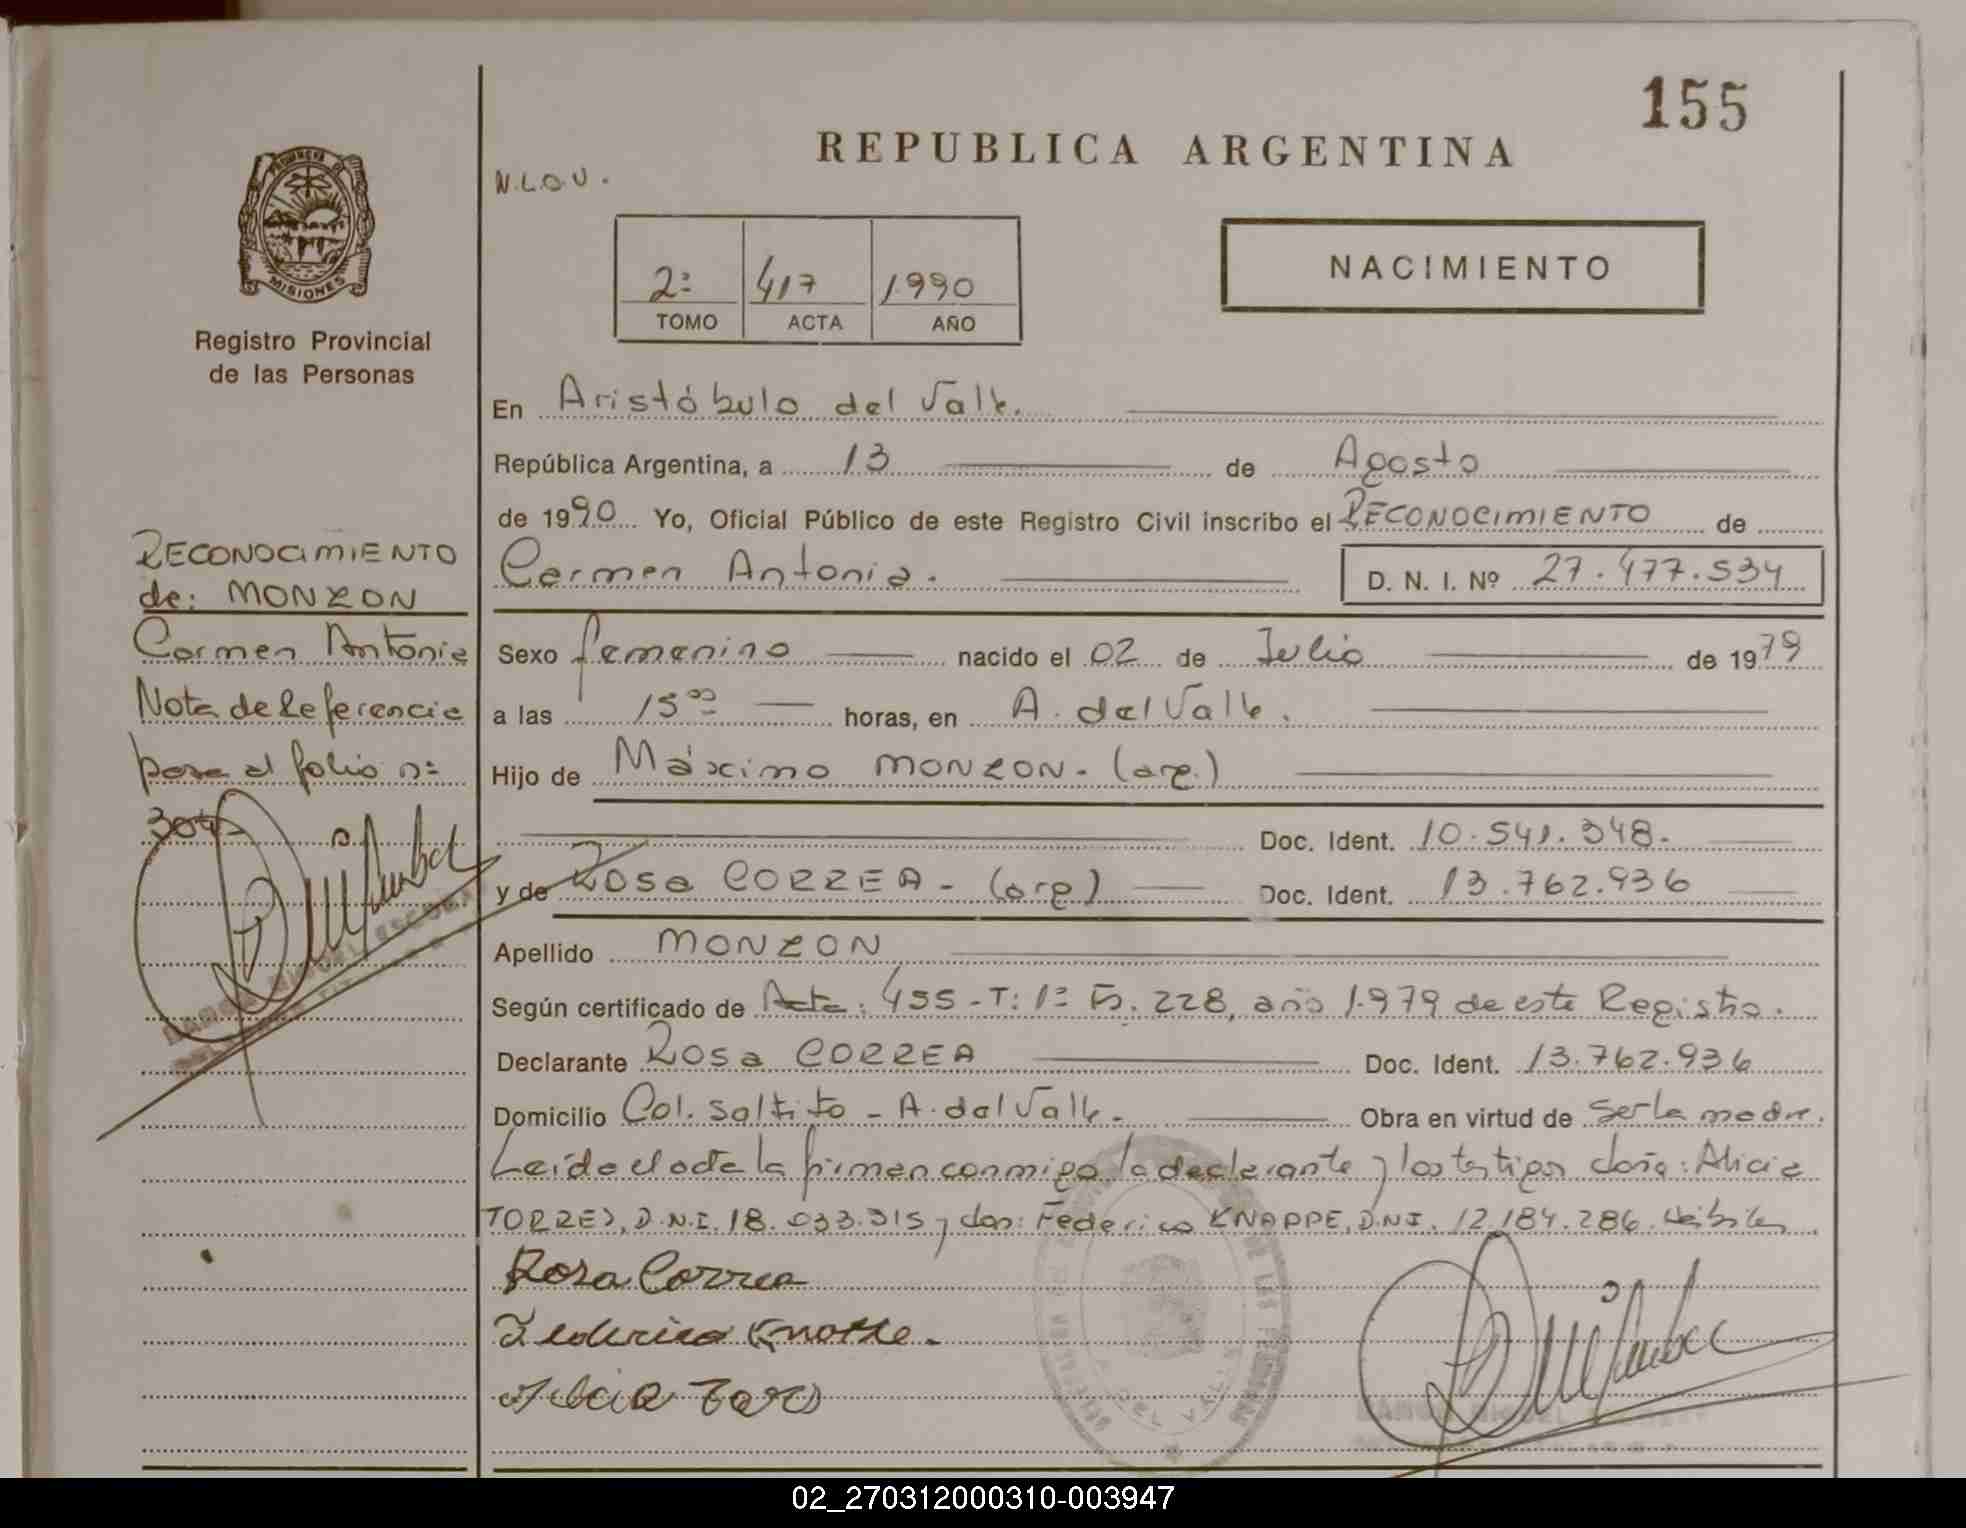 155
REPUBLICA ARGENTINA
N.L.O.U.
PROVINCIA DE
MISIONES
Registro Provincial
de las Personas
NACIMIENTO
2º 417 1990
TOMO ACTA AÑO
En Aristóbulo del Valle.
República Argentina, a 13 de Agosto
de 1990 Yo, Oficial Público de este Registro Civil inscribo el RECONOCIMIENTO de
Carmen Antonia. D. N. I. Nº 27.477.534
Sexo femenino nacido el 02 de Julio de 1979
a las 15⁰⁰ horas, en A. del Valle.
Hijo de Máximo MONZON. (arg.)
Doc. Ident. 10.541.348.
y de Rosa CORREA - (arg) Doc. Ident. 13.762.936
Apellido MONZON
Según certificado de Acta: 455 - T: 1º Fº. 228, año 1.979 de este Registro.
Declarante Rosa CORREA Doc. Ident. 13.762.936
Domicilio Col. Saltito - A. del Valle. Obra en virtud de ser la madre.
Leída el acta la firman conmigo la declarante y los testigos doña: Alicia
TORRES, D.N.I. 18.033.315 y don: Federico KNAPPE, D.N.I. 12.184.286. hábiles
Rosa Correa
Federico
RECONOCIMIENTO
de: MONZON
Carmen Antonia
Nota de Referencia
para el folio nº
304
02_270312000310-003947